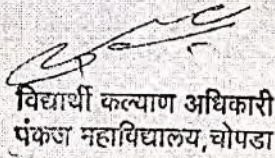 विद्यार्थी कल्याण अधिकारी
पंकज महाविद्यालय, चोपडा